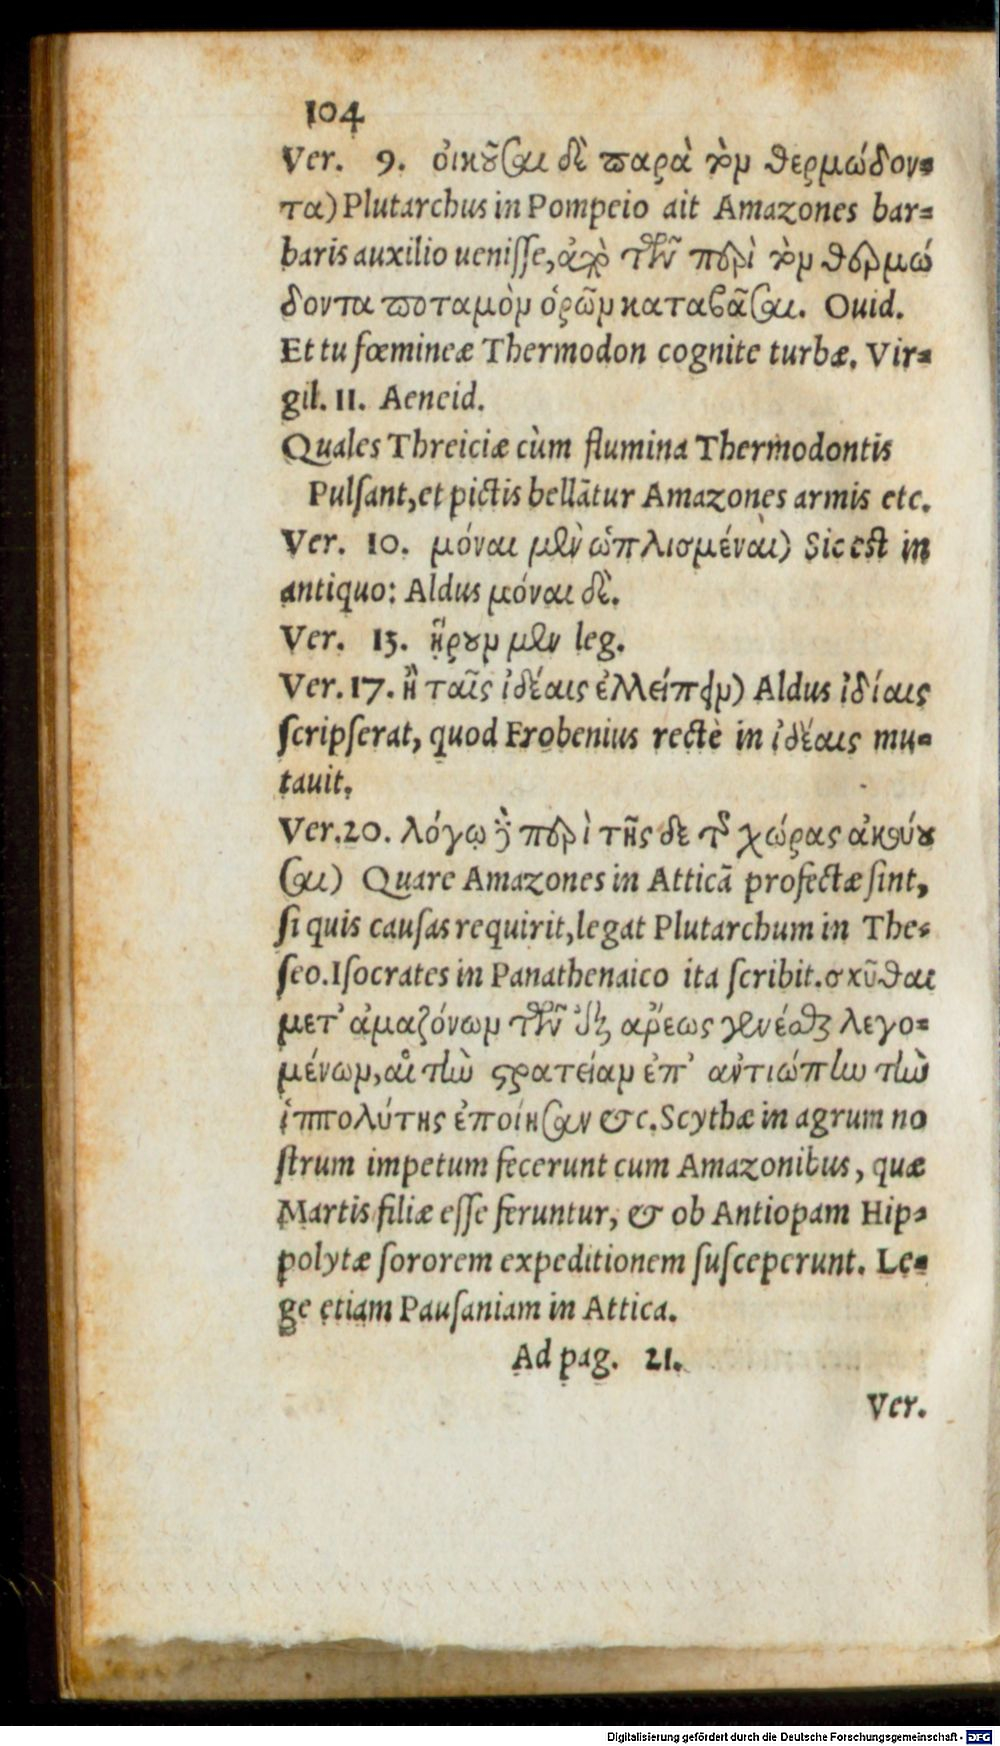 104
Ver. 9. οἰκοῦσαι δὲ παρὰ τὸν θερμώδον-
τα) Plutarchus in Pompeio ait Amazones bar-
baris auxilio uenisse, ἀπὸ τῶν περὶ τὸν θερμώ
δοντα ποταμὸν ὀρῶν καταβᾶσαι. Ouid.
Et tu fœmineæ Thermodon cognite turbæ. Vir-
gil. 11. Aeneid.
Quales Threiciæ cùm flumina Thermodontis
Pulsant, et pictis bellātur Amazones armis etc.
Ver. 10. μόναι μὲν ὡπλισμέναι) Sic est in
antiquo: Aldus μόναι δὲ.
Ver. 13. ἥρουν μὲν leg.
Ver. 17. ἢ ταῖς ἰδέαις ἐλλείπειν) Aldus ἰδίαις
scripserat, quod Frobenius rectè in ἰδέαις mu-
tauit.
Ver. 20. λόγῳ περὶ τῆς δε τῆς χώρας ἀκούου
σαι) Quare Amazones in Atticā profectæ sint,
si quis causas requirit, legat Plutarchum in The-
seo. Isocrates in Panathenaico ita scribit. σκῦθαι
μετ' ἀμαζόνων τῶν ἐξ ἄρεως γενέσθαι λεγο-
μένων, αἳ τὴν στρατείαν ἐπ' ἀντιώπην τὴν
ἱππολύτης ἐποίησαν &c. Scythæ in agrum no
strum impetum fecerunt cum Amazonibus, quæ
Martis filiæ esse feruntur, & ob Antiopam Hip-
polytæ sororem expeditionem susceperunt. Le-
ge etiam Pausaniam in Attica.
Ad pag. 21.
Ver.
Digitalisierung gefördert durch die Deutsche Forschungsgemeinschaft - DFG